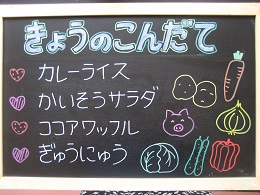 きょうのこんだて
カレーライス
かいそうサラダ
ココアワッフル
ぎゅうにゅう